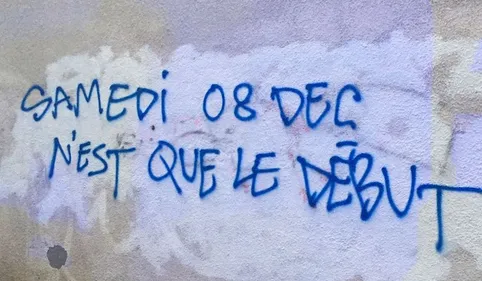 SAMEDI 08 DEC
N'EST QUE LE DÉBUT